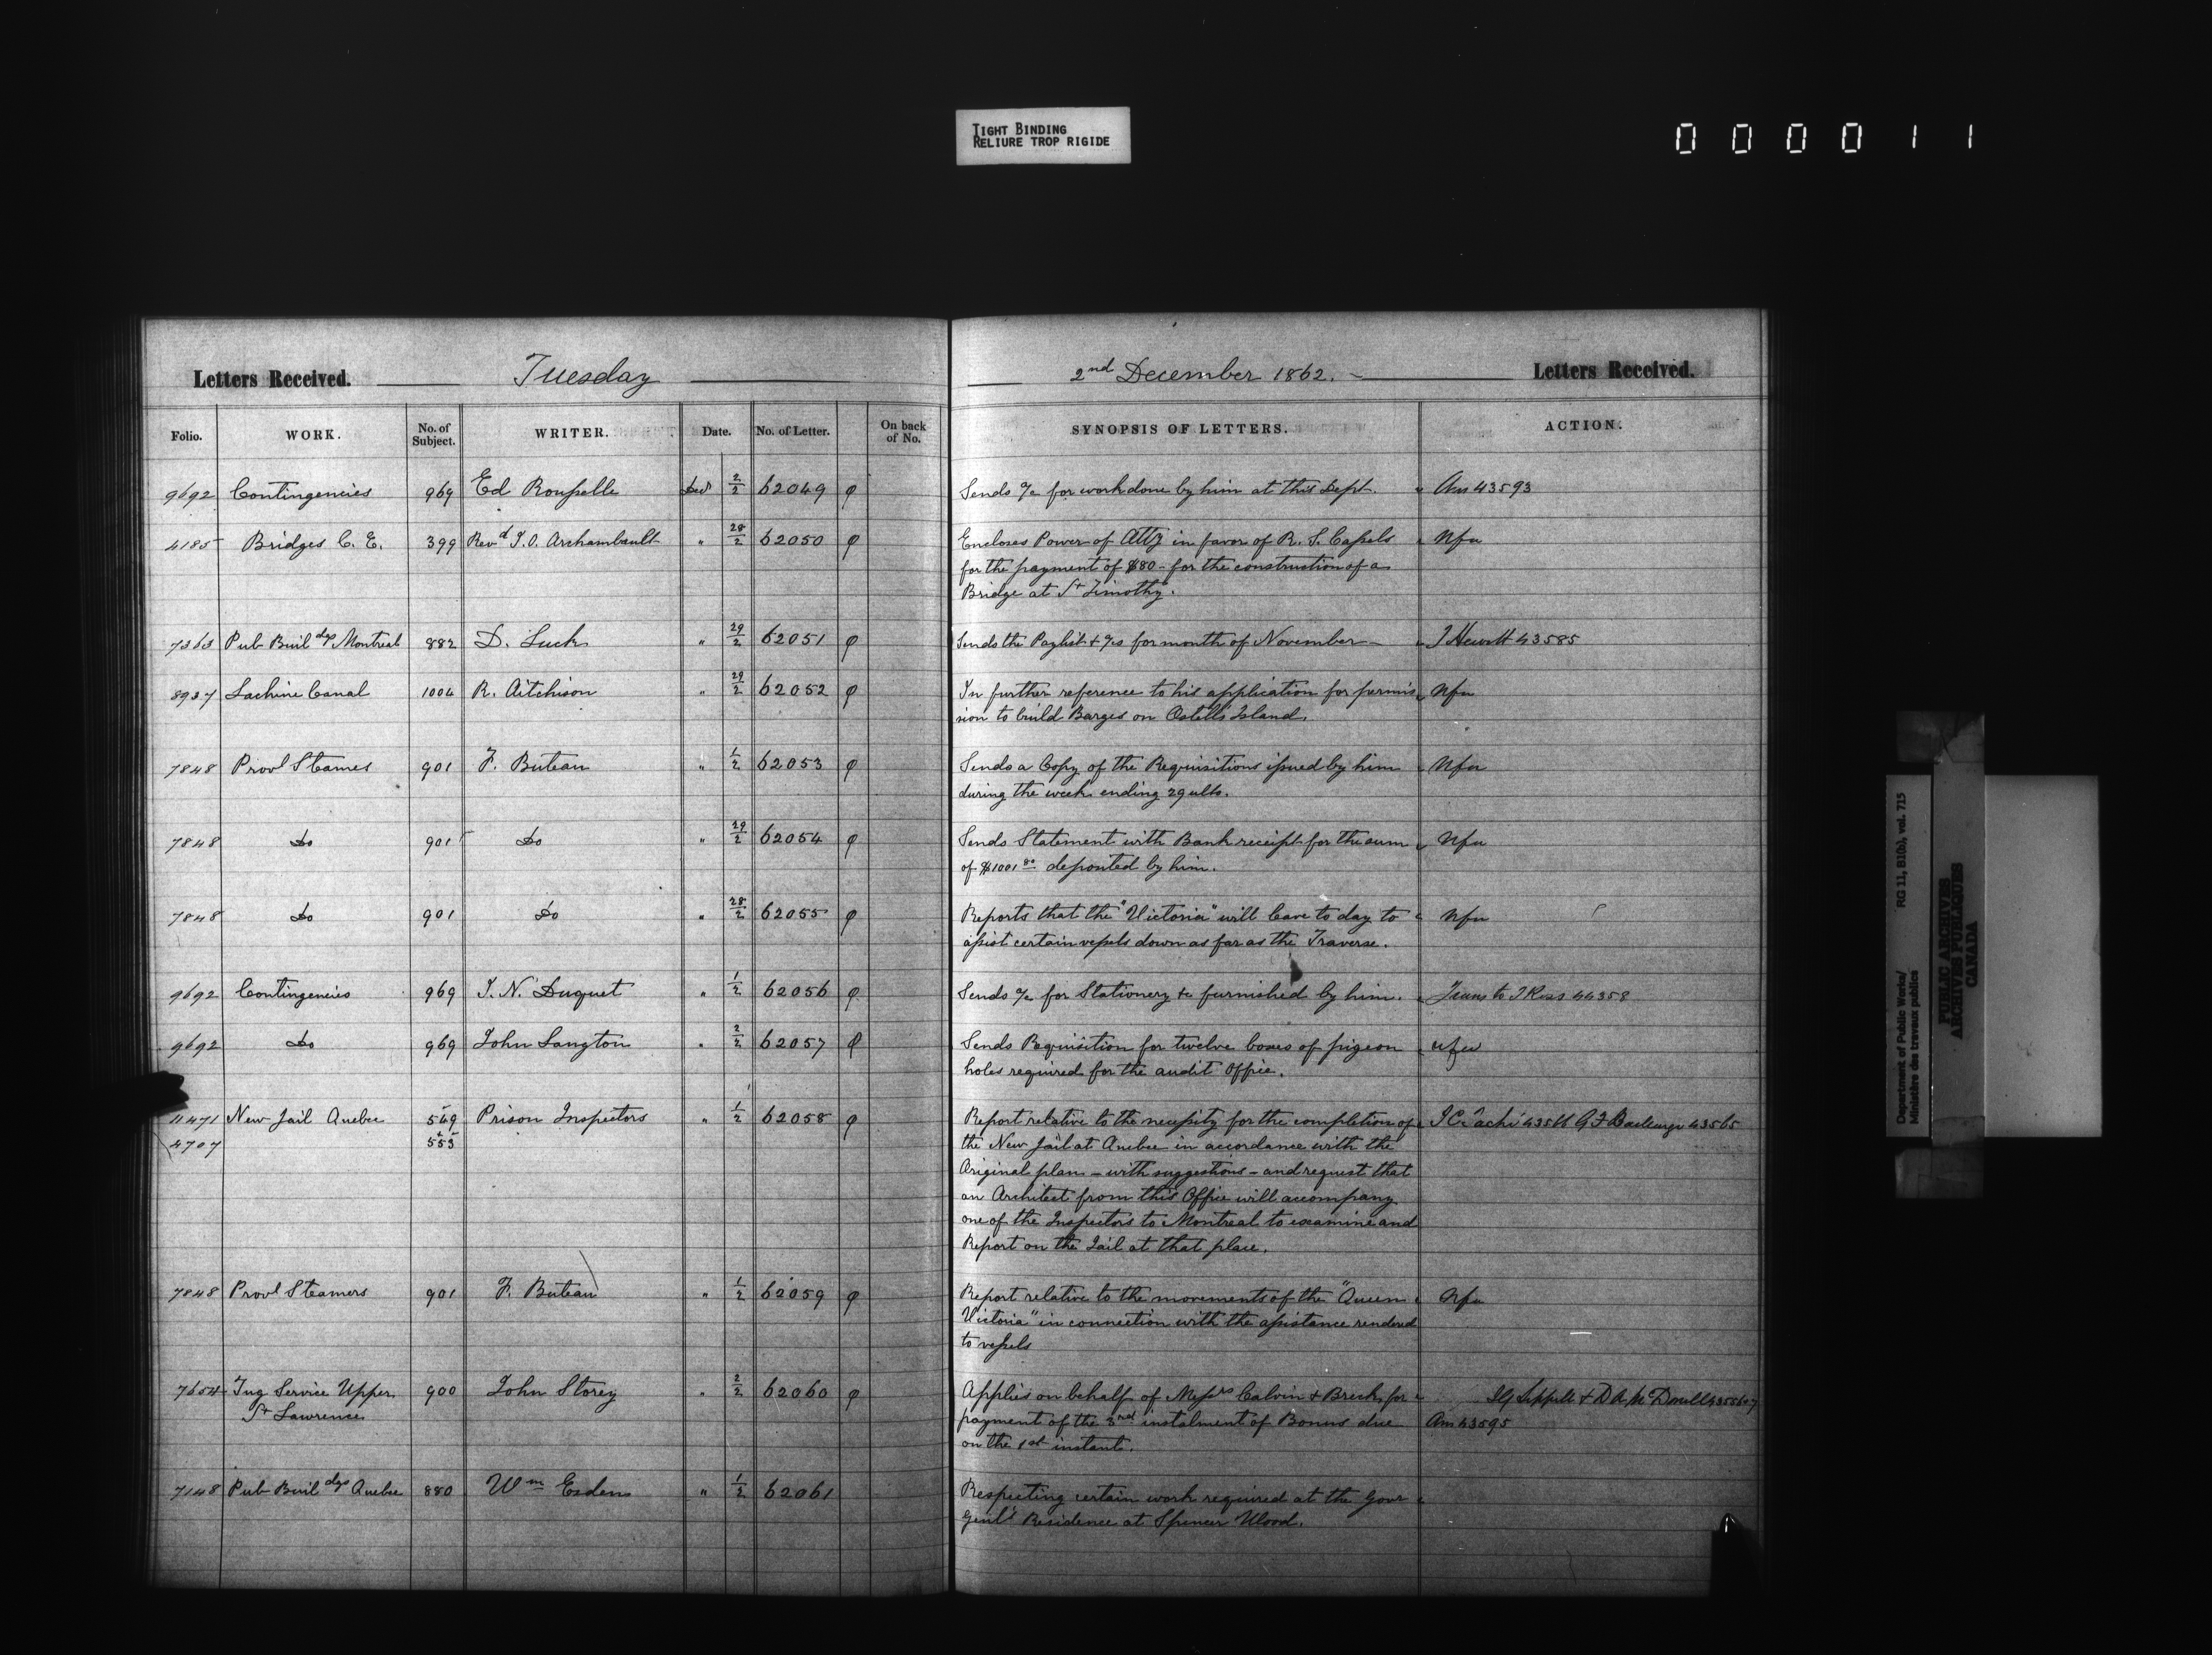 TIGHT BINDING
RELIURE TROP RIGIDE
000011
Letters Received. Tuesday 2nd December 1862. Letters Received.
Folio. WORK. No. of Subject. WRITER. Date. No. of Letter. On back of No. SYNOPSIS OF LETTERS. ACTION.
9692 Contingencies 969 Ed Rousselle Decr 2/2 62049 φ Sends a/c for work done by him at this Dept. " Ans 43593
4185 Bridges C. E. 399 Revd T.O. Archambault " 28/2 62050 φ Encloses Power of Atty in favor of R. S. Cassels " Nfa
for the payment of $80 - for the construction of a
Bridge at St Timothy.
7363 Pub Buildgs Montreal 882 D. Luck " 29/2 62051 φ Sends the Paylist & a/cs for month of November - " J Hewitt 43585
8937 Lachine Canal 1004 R. Aitchison " 29/2 62052 φ In further reference to his application for permis " Nfa
sion to build Barges on Ostell's Island.
7848 Provl Steames 901 F. Buteau " 1/2 62053 φ Sends a Copy of the Requisitions issued by him " Nfa
during the week ending 29 ulto.
7848 Do 901 Do " 29/2 62054 φ Sends Statement with Bank receipt for the sum " Nfa
of $1001 80 deposited by him.
7848 Do 901 Do " 28/2 62055 φ Reports that the "Victoria" will leave to day to " Nfa
assist certain vessels down as far as the Traverse.
9692 Contingencies 969 J. N. Duquet " 1/2 62056 φ Sends a/c for Stationery &c furnished by him. " Trans to J Ross 44358
9692 Do 969 John Langton " 2/2 62057 φ Sends Requisition for twelve boxes of pigeon " nfa
holes required for the audit Office.
11471 New Jail Quebec 549 Prison Inspectors " 1/2 62058 φ Report relative to the necessity for the completion of " J C Taché 43566 G F Baillairgé 43565
4707 & 553 the New Jail at Quebec in accordance with the
Original plan - with suggestions - and request that
an Architect from this Office will accompany
one of the Inspectors to Montreal to examine and
Report on the Jail at that place.
7848 Provl Steamers 901 F. Buteau " 1/2 62059 φ Report relative to the movements of the "Queen " Nfa
Victoria" in connection with the assistance rendered
to vessels
7654 Tug Service Upper 900 John Storey " 2/2 62060 φ Applies on behalf of Messrs Calvin & Breck, for "
St Lawrence payment of the 3rd instalment of Bonus due Ans 43595
on the 1st instant.
7148 Pub Buildgs Quebec 880 Wm " 1/2 62061 Respecting certain work required at the Govr "
Genl's Residence at Spencer Wood.
Department of Public Works/ RG 11, B1(b), vol. 715
Ministère des travaux publics
PUBLIC ARCHIVES
ARCHIVES PUBLIQUES
CANADA